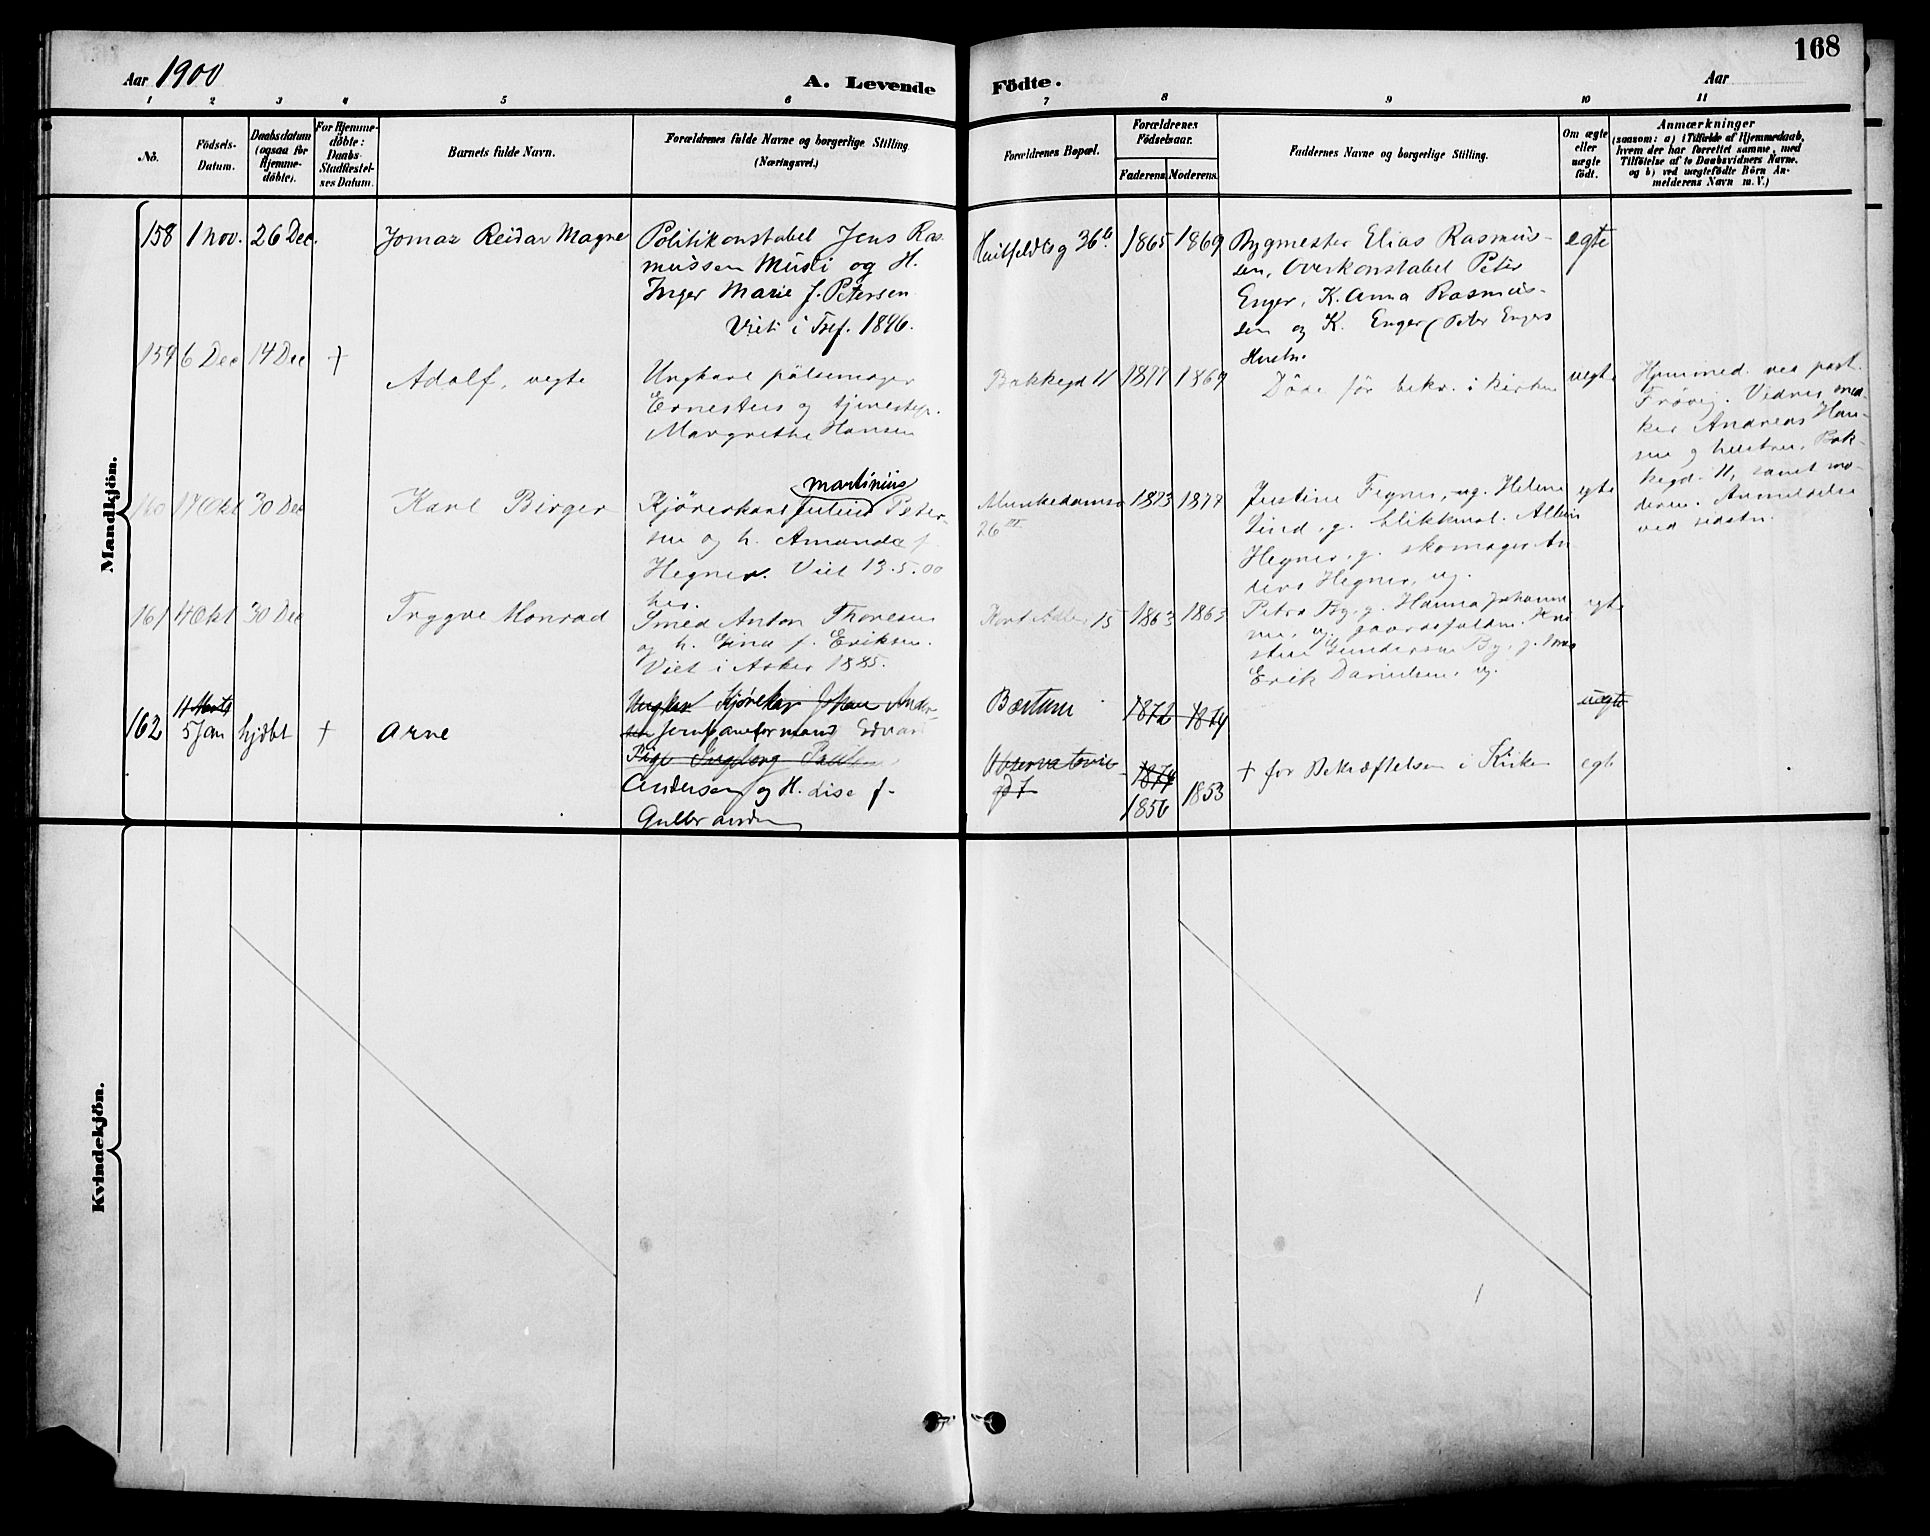 168
Aar 1900
A. Levende
Födte.
Aar
1 2 3 4 5 6
7 8 9 10 11
Nö.
Födsels-
Datum.
Daabsdatum
(ogsaa for
Hjemme-
döbte).
For Hjemme-
döbte:
Daabs-
Stadfæstel-
ses Datum.
Barnets fulde Navn.
Forældrenes fulde Navne og borgerlige Stilling
(Næringsvei.)
Forældrenes Bopæl.
Forældrenes
Födselsaar.
Faderens.
Moderens.
Faddernes Navne og borgerlige Stilling.
Om ægte
eller
uægte
födt.
Anmærkninger
(saasom: a) i Tilfælde af Hjemmedaab,
hvem der har forrettet samme, med
Tilföielse af to Daabsvidners Navne,
og b) ved uægtefödte Börn An-
melderens Navn m. V.)
Mandkjön.
158 1 Nov. 26 Dec. Jomar Reidar Magne
Politikonstabel Jens Ras-
mussen Musli og H.
Inger Marie f. Petersen
Viet i Tref. 1896.
Huitfeldtsg 36 b 1865 1869
Bygmester Elias Rasmus-
sen, Overkonstabel Peter
Enger, K. Anna Rasmus-
sen og K. Enger (Peter Engers
Hustru
egte
159 6 Dec 14 Dec + Adolf, uegte
Ungkarl pölsemager
Ernestus og tjenestep.
Margrethe Hansen
Bakkegd 11 1877 1869
Döde för bekr. i kirken
uegte
Hjemmed. ved past.
Frövig. Vidner, sned-
ker Andreas Han-
sen og hustru, Bak-
kegd. 11, samt mo-
deren. Anmeldelse
ved sidstn.
160 17 Okt 30 Dec Karl Birger
Martinius
Kjörerkarl Julius Peter-
sen og h. Amanda f.
Hegner. Viet 13.5.00
her.
Munkedamsv
26 III
1873 1877
Justine Hegner, ug. Helene
Lind, g. blikkensl. Albin
Hegner, g. skomager An
ders Hegner, ug.
egte
161 4 Okt 30 Dec Tryggve Monrad
Smed Anton Thoresen
og h. Gina f. Eriksen.
Viet i Asker 1885.
Kort Adlers 15 1863 1863
Petra By, g. Hanna Johanne
Gundersen By, g.
Erik Danielsen, ug.
egte
162 5 Jan hjdbt + Arne
Ungkar Kjörekar Johan Ander-
sen Jernbaneformand Edvar
Pige Ingeborg Paulsen
Andersen og H. Lise f.
Gulbrandsen
Bærum
Observatorie-
gd 7
1872 1874
1874
1856 1853
+ før Bekræftelsen i Kirken
uegte
egte
Kvindekjön.